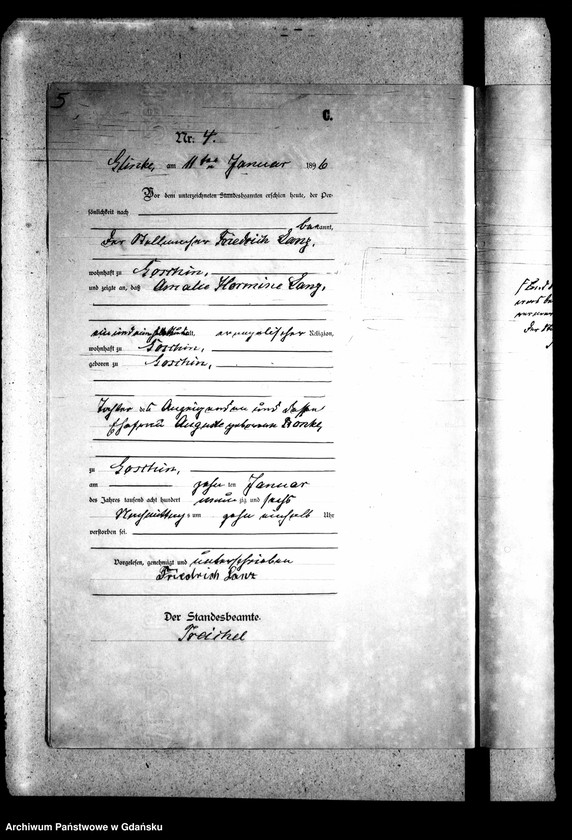 5
C.
Nr. 4.
am 11ten Januar 1896
Vor dem unterzeichneten Standesbeamten erschien heute, der Per-
sönlichkeit nach
bekannt,
der Friedrich Lanz,
wohnhaft zu Goschin,
und zeigte an, daß Amalie Hermine Lanz,
alt, evangelischer Religion,
wohnhaft zu Goschin,
geboren zu Goschin,
Tochter des Anzeigenden und dessen
Ehefrau Auguste geborenen
zu Goschin,
am zehn ten Januar
des Jahres tausend acht hundert neun zig und sechs
Nachmittags um zehn einhalb Uhr
verstorben sei.
Vorgelesen, genehmigt und unterschrieben
Friedrich Lanz
Der Standesbeamte.
Treichel
Archiwum Państwowe w Gdańsku